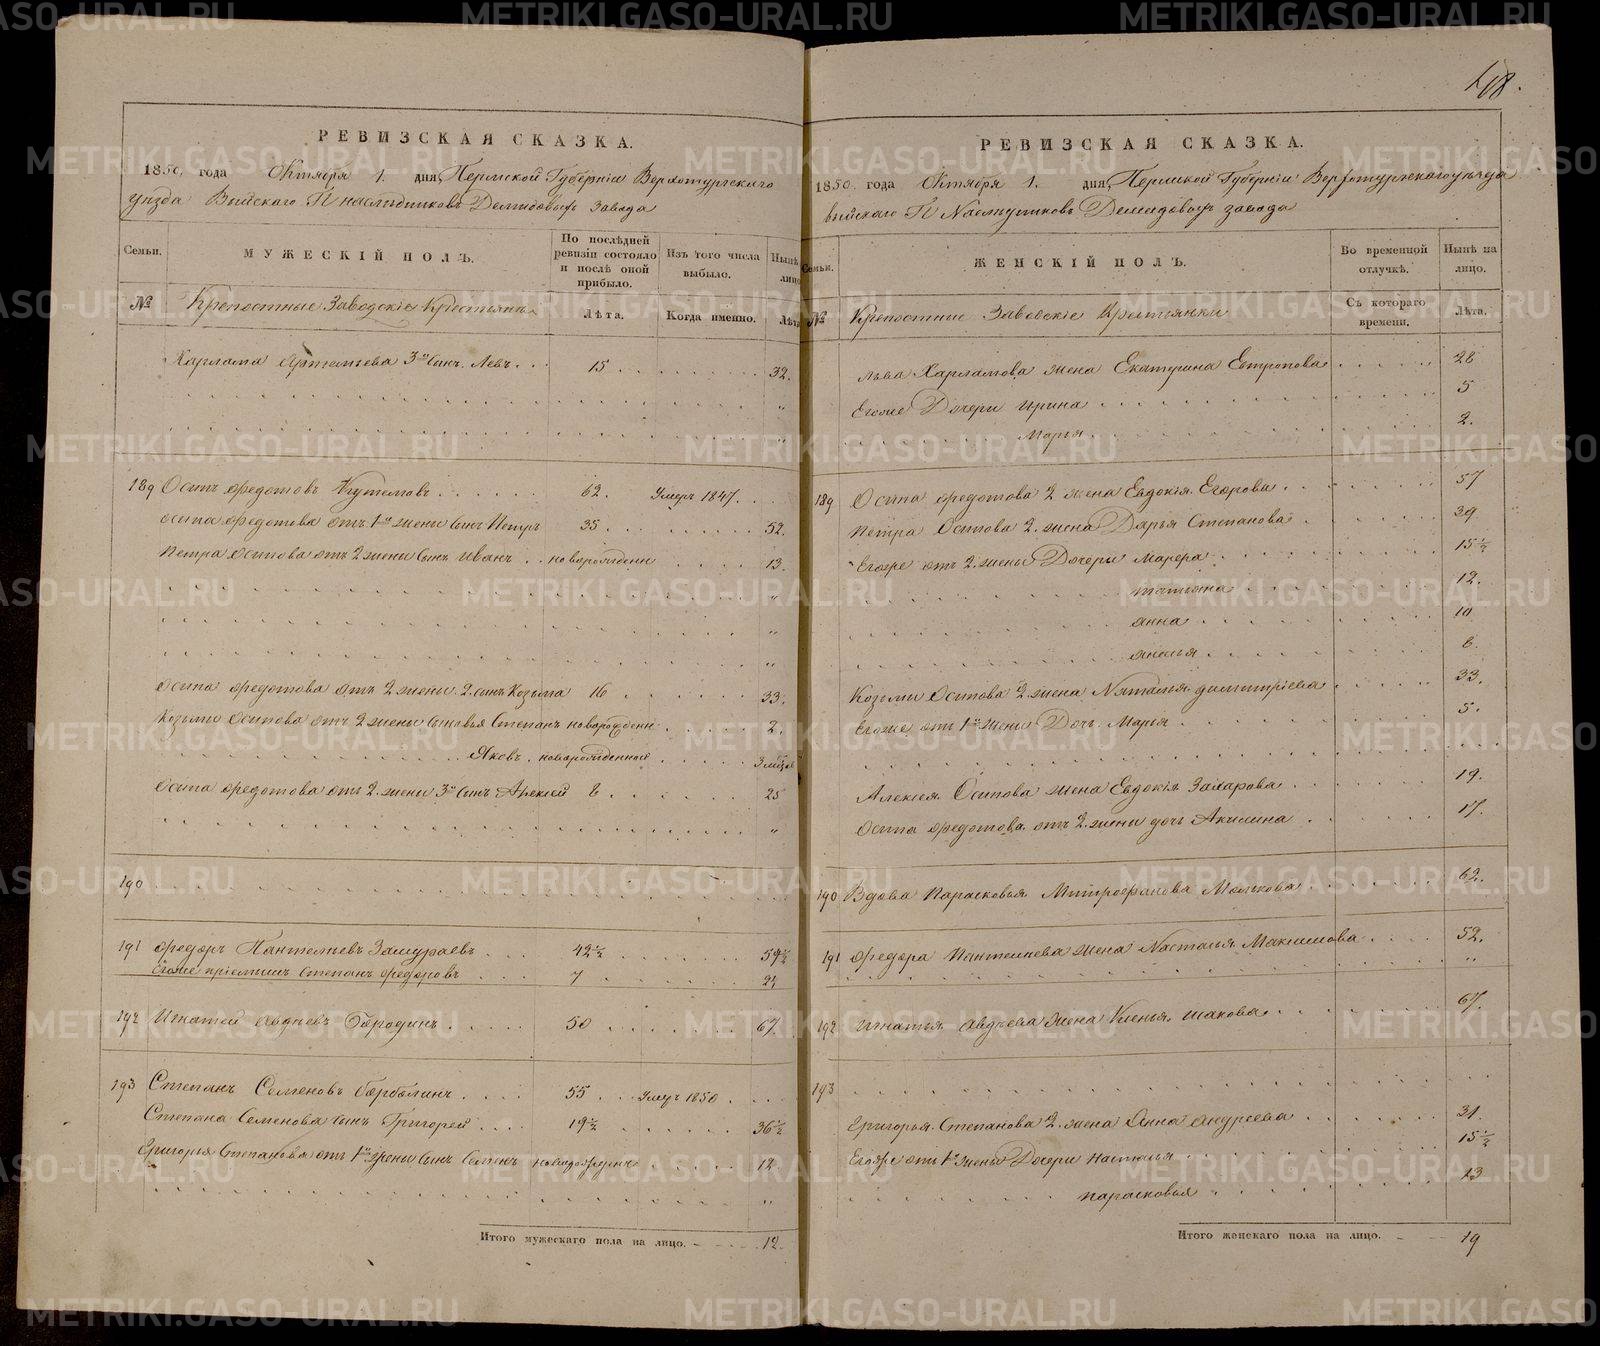 108.
РЕВИЗСКАЯ СКАЗКА.
1850. года Октября 1. дня, Пермской Губерніи Верхотурскаго
уѣзда Выйскаго Гг наслѣдниковъ Демидовыхъ завода
Семьи. МУЖЕСКІЙ ПОЛЪ. По послѣдней ревизіи состояло и послѣ оной прибыло. Изъ того числа выбыло. Нынѣ на лицо
№ Крѣпостные Заводскіе Крестьяне Лѣта. Когда именно. Лѣта
Харлама Артемьева 3й сынъ Левъ 15 32.
189 Осипъ Ѳедотовъ 62. Умеръ 1847.
Осипа Ѳедотова отъ 1й жены сынъ Петръ 35 52.
Петра Осипова отъ 2 жены сынъ Иванъ новорожденн 13.
Осипа Ѳедотова отъ 2 жены 2. сынъ Козьма 16 33.
Козьмы Осипова отъ 2 жены сыновья Степанъ новорожденн 2.
Яковъ новорожденный 3 мѣсяц
Осипа Ѳедотова отъ 2. жены 3й сынъ Алексей 8 25
190
191 Ѳедоръ Пантелѣевъ Замураевъ 42½ 59½
Егоже пріемышъ Степанъ Ѳедоровъ 7 24
192 Игнатей Авдѣевъ Бородинъ 50 67.
193 Степанъ Семеновъ 55 Умеръ 1850
Степана Семенова сынъ Григорей 19½ 36½
Григорья Степанова отъ 1й жены сынъ Семенъ новорожденн 12
Итого мужескаго пола на лицо. 12.
РЕВИЗСКАЯ СКАЗКА.
1850. года Октября 1. дня, Пермской Губерніи Верхотурскаго уѣзда
Выйскаго Гг Наслѣдниковъ Демидовыхъ завода
Семьи. ЖЕНСКІЙ ПОЛЪ. Во временной отлучкѣ. Нынѣ на лицо.
№ Крѣпостные Заводскіе Крестьянки Съ котораго времени. Лѣта.
Льва Харламова жена Екатерина Евтропова 28
Егоже Дочери Ирина 5
Марья 2.
189 Осипа Ѳедотова 2 жена Евдокія Егорова 57
Петра Осипова 2. жена Дарья Степанова 39
Егоже отъ 2. жены Дочери Марѳа 15½
Татьяна 12.
Анна 10
6.
Козьмы Осипова 2 жена Наталья Димитріева 33.
Егоже отъ 1й жены Дочь Марья 5.
Алексея Осипова жена Евдокія Захарова 19.
Осипа Ѳедотова отъ 2. жены дочь Акилина 17.
190 Вдова Парасковья Митрофанова 62.
191 Ѳедора Пантелѣева жена Настасья Максимова 52.
192 Игнатья Авдѣева жена 67.
193
Григорья Степанова 2. жена Анна Андреева 31.
Егоже отъ 1й жены Дочери Настасья 15½
Парасковья 13
Итого женскаго пола на лицо. 19
METRIKI.GASO-URAL.RU